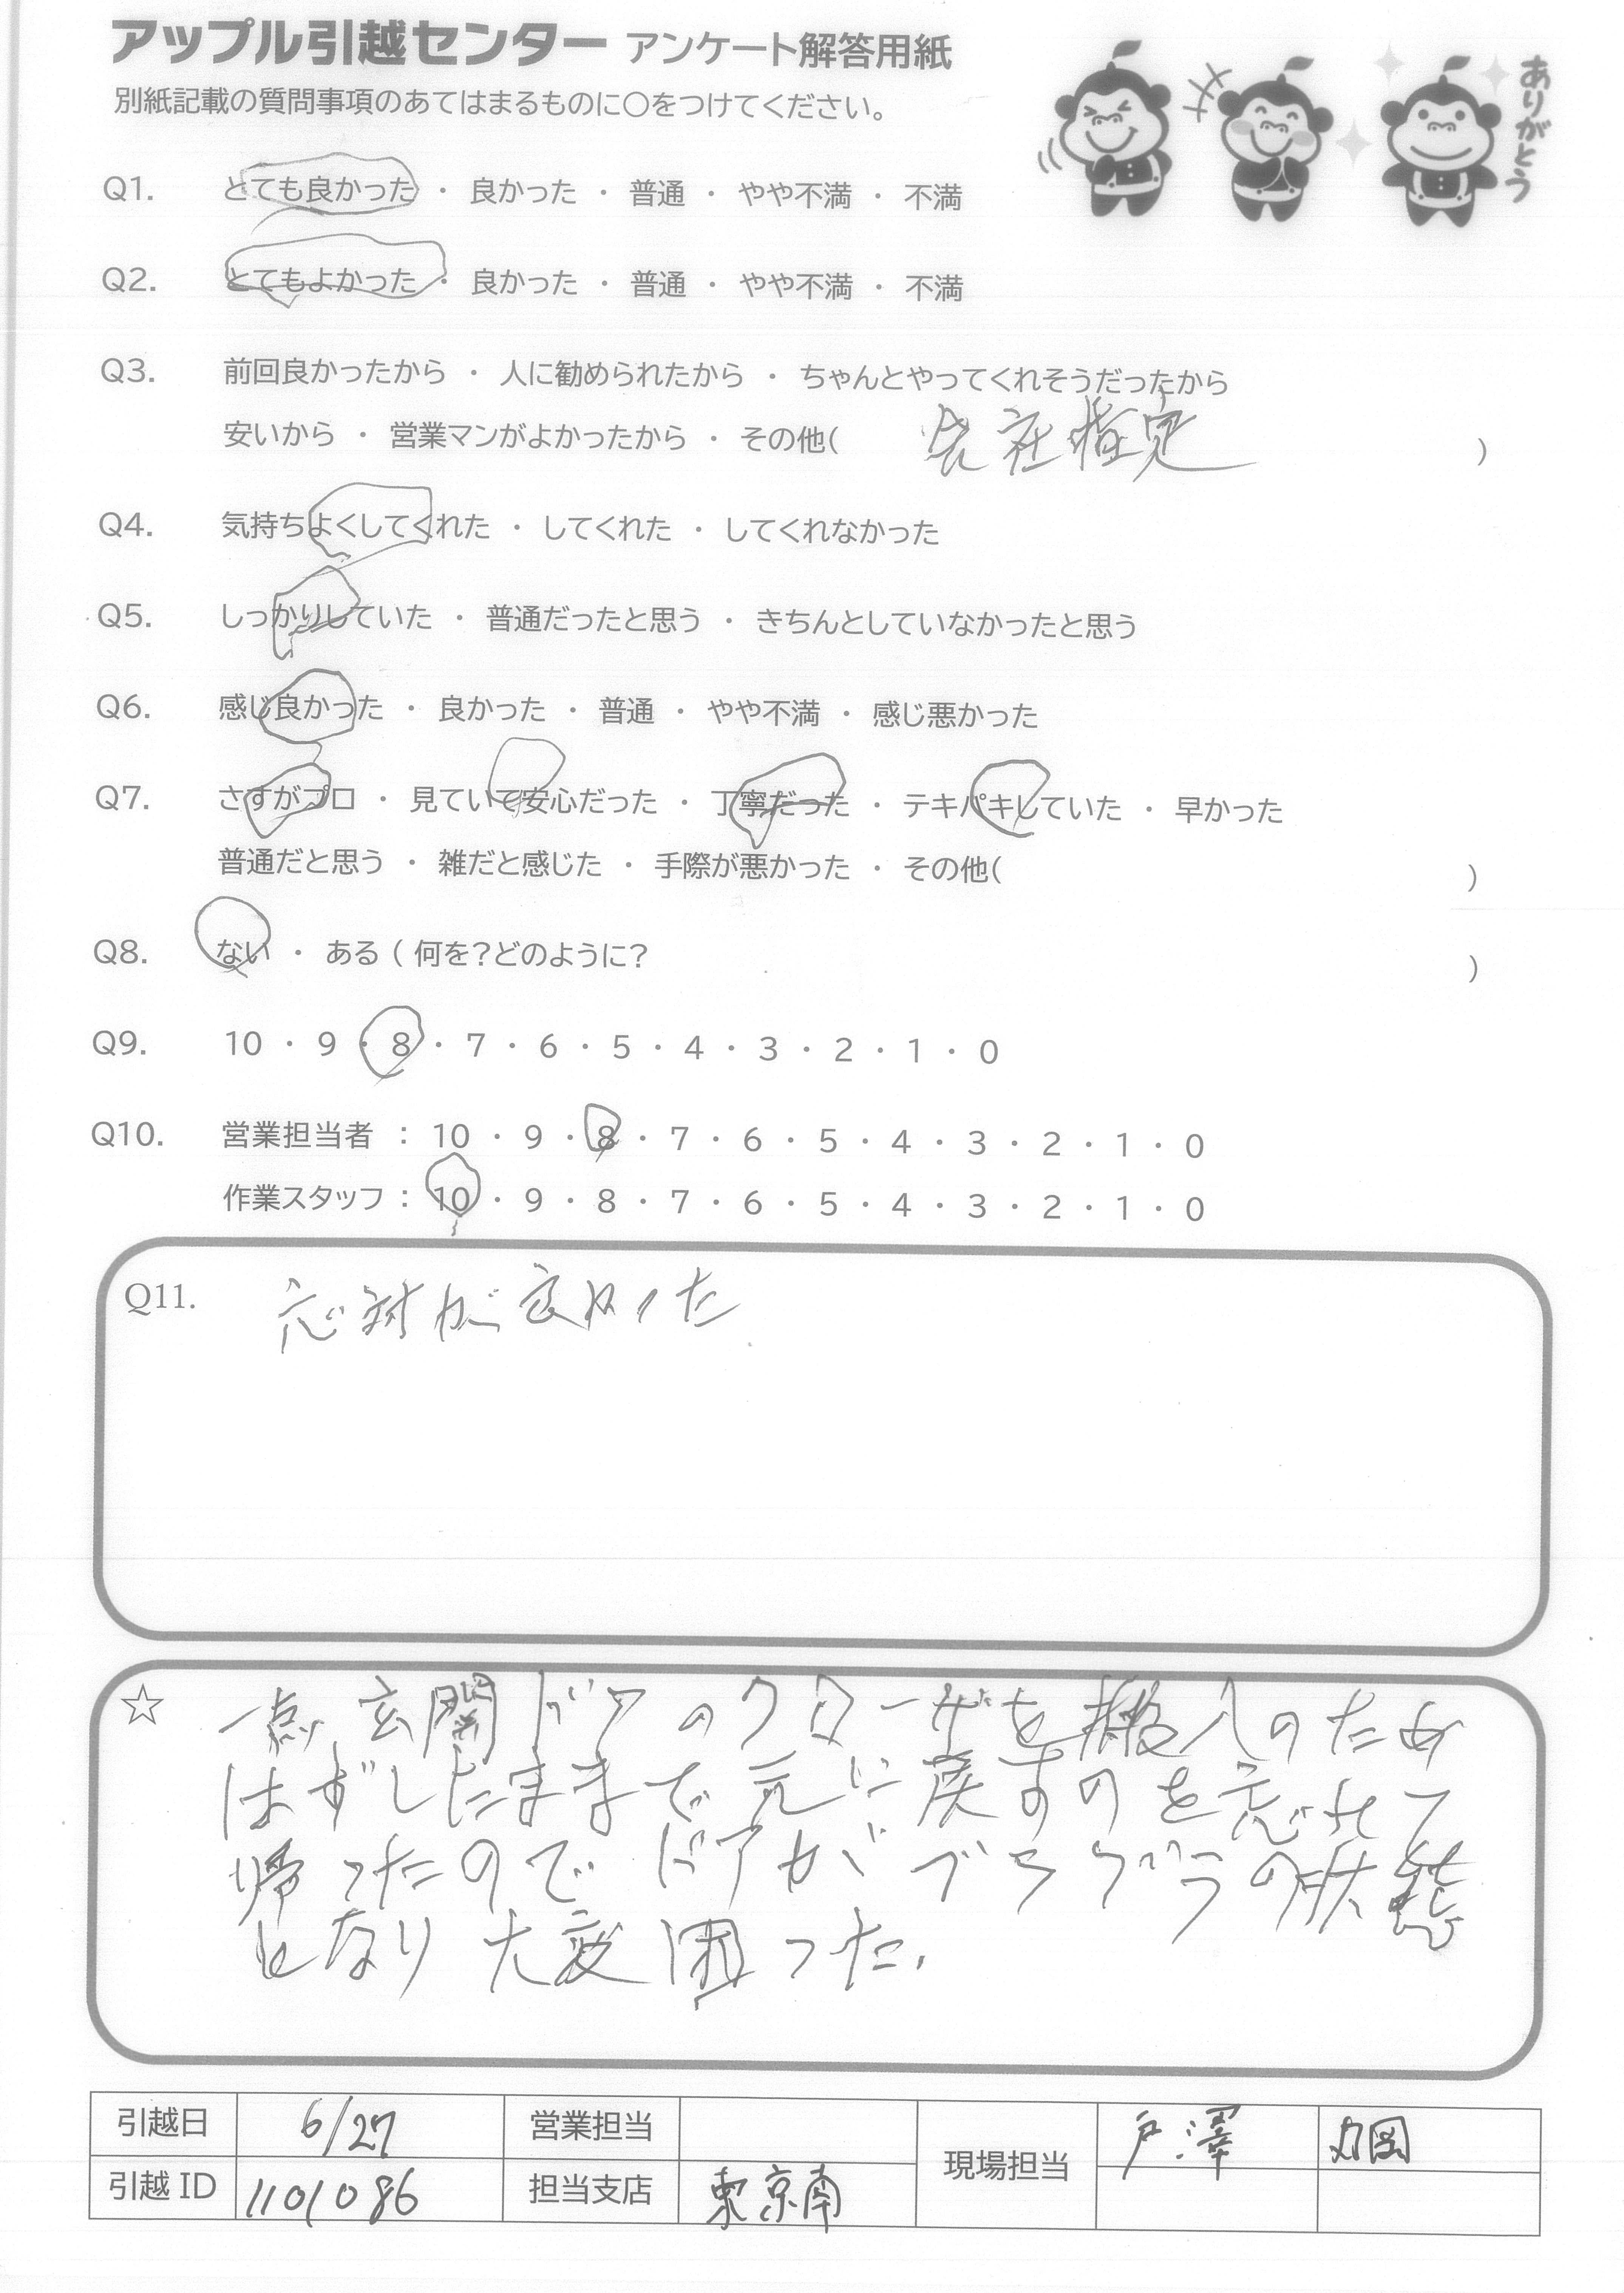 アップル引越センター アンケート解答用紙
別紙記載の質問事項のあてはまるものに〇をつけてください。
ありがとう
Q1. とても良かった ・ 良かった ・ 普通 ・ やや不満 ・ 不満
Q2. とてもよかった ・ 良かった ・ 普通 ・ やや不満 ・ 不満
Q3. 前回良かったから ・ 人に勧められたから ・ ちゃんとやってくれそうだったから
安いから ・ 営業マンがよかったから ・ その他( 会社指定 )
Q4. 気持ちよくしてくれた ・ してくれた ・ してくれなかった
Q5. しっかりしていた ・ 普通だったと思う ・ きちんとしていなかったと思う
Q6. 感じ良かった ・ 良かった ・ 普通 ・ やや不満 ・ 感じ悪かった
Q7. さすがプロ ・ 見ていて安心だった ・ 丁寧だった ・ テキパキしていた ・ 早かった
普通だと思う ・ 雑だと感じた ・ 手際が悪かった ・ その他( )
Q8. ない ・ ある ( 何を?どのように? )
Q9. 10 ・ 9 ・ 8 ・ 7 ・ 6 ・ 5 ・ 4 ・ 3 ・ 2 ・ 1 ・ 0
Q10. 営業担当者 : 10 ・ 9 ・ 8 ・ 7 ・ 6 ・ 5 ・ 4 ・ 3 ・ 2 ・ 1 ・ 0
作業スタッフ : 10 ・ 9 ・ 8 ・ 7 ・ 6 ・ 5 ・ 4 ・ 3 ・ 2 ・ 1 ・ 0
Q11. 応対が良かった
☆ 一点玄関ドアのクローザを搬入のため
はずしたままで元に戻すのを忘れて
帰ったのでドアがブラブラの状態
となり大変困った.
引越日 6/27 営業担当 現場担当 戸澤
引越 ID 1101086 担当支店 東京南